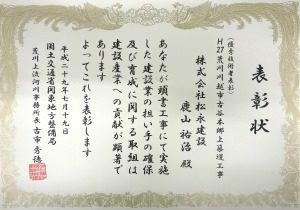 表彰状
(優秀技術者表彰)
H27荒川川越市古谷本郷上築堤工事
株式会社松永建設
鹿山裕治殿
あなたが頭書工事にて実施
した建設業の担い手の確保
及び育成に関する取組は
建設産業への貢献が顕著で
あります
よってこれを表彰します
平成二十九年七月十九日
国土交通省関東地方整備局
荒川上流河川事務所長 古市秀徳